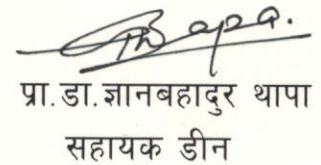 प्रा.डा.ज्ञानबहादुर थापा
सहायक डीन